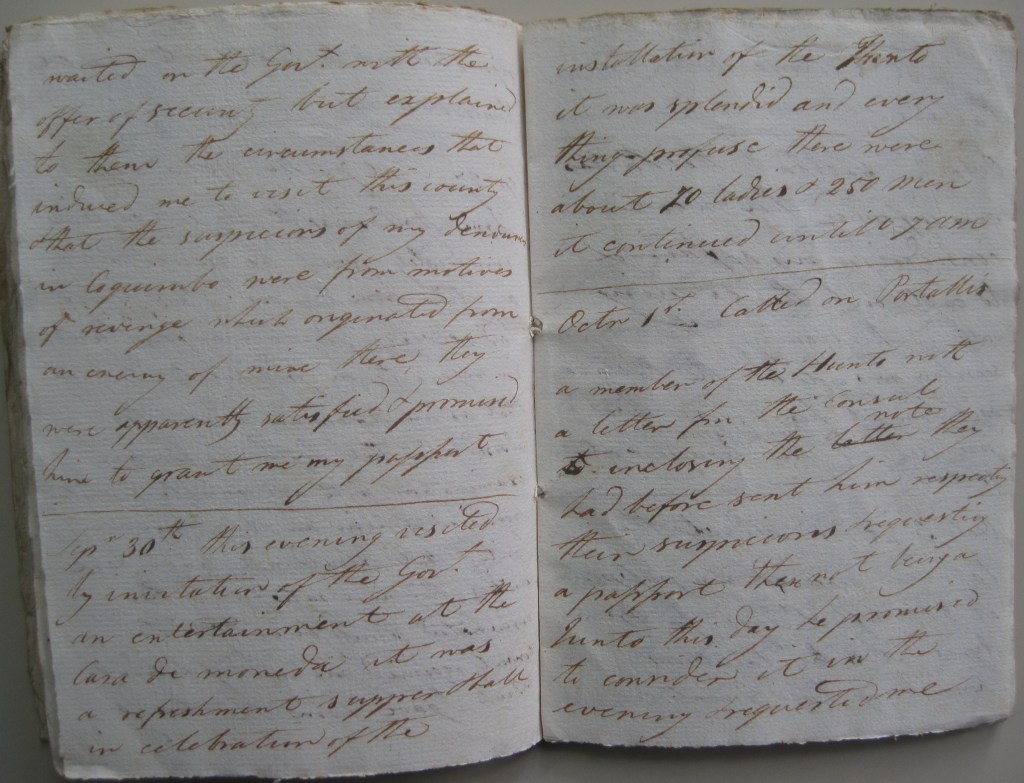 waited on the Govt. with the
offer of security but explained
to them the circumstances that
induced me to visit this county
& that the suspicions of my
in Coquimbo were from motives
of revenge which originated from
an enemy of mine there, they
were apparently satisfied & promised
hine to grant me my passport
Sepr 30th this evening visited
by invitation of the Govt.
an entertainment at the
Casa de moneda it was
a refreshment supper & ball
in celebration of the
installation of the Junto
it was splendid and every
thing profuse there were
about 70 ladies & 250 men
it continued until 7 am
Octr 1st. Called on Portallis
a member of the Hunto with
a letter fm the Consul
note
inclosing the letter they
had before sent him respecting
their suspicions & requesting
a passport there not being a
Junto this day he promised
to consider it in the
evening & requested me